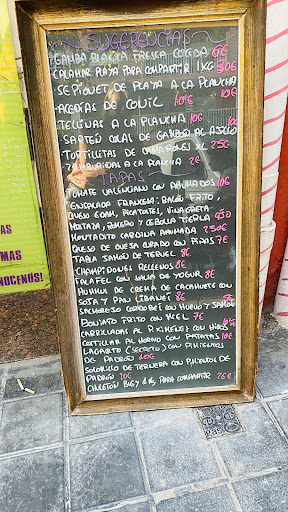 SUGERENCIAS
GAMBA BLANCA FRESCA COCIDA 6€
CALAMAR PLAYA PARA COMPARTIR 1KG 30€
SEPIONET DE PLAYA A LA PLANCHA 10€
ACEDIAS DE CONIL 10€
TELLINAS A LA PLANCHA 10€
SARTEN COLAS DE GAMBAS AL AJILLO
TORTILLITAS DE CAMARONES XL 2'50€
ZAMBURIÑAS A LA PLANCHA 2€
TAPAS
TOMATE VALENCIANO CON AHUMADOS 10€
ENSALADA FRANCESA: BACON FRITO,
QUESO EDAM, PICATOSTES, VINAGRETA
MOSTAZA, ROMERO Y CEBOLLA TIERNA 9'50
MONTADITO SARDINA AHUMADA 2'50€
QUESO DE OVEJA CURADO CON PIPAS 7€
TABLA JAMON DE TERUEL 8€
CHAMPIÑONES RELLENOS 8€
FALAFEL CON SALSA DE YOGUR 8€
HUMMUS DE CREMA DE CACAHUETE CON
SOJA Y PAN LIBANES 8€
SALMOREJO CORDOBES CON HUEVO Y JAMON
BONIATO FRITO CON MIEL
CARRILLADAS AL P.XIMENEZ CON
AL HORNO CON PATATAS 10€
LAGARTO (SECRETO) CON PIMIENTOS
DE PADRON 10€
SOLOMILLO DE TERNERA CON PIMIENTOS DE
PADRON 10€
CHULETON 1KG PARA COMPARTIR 25€
AS
MAS
NOCENOS!